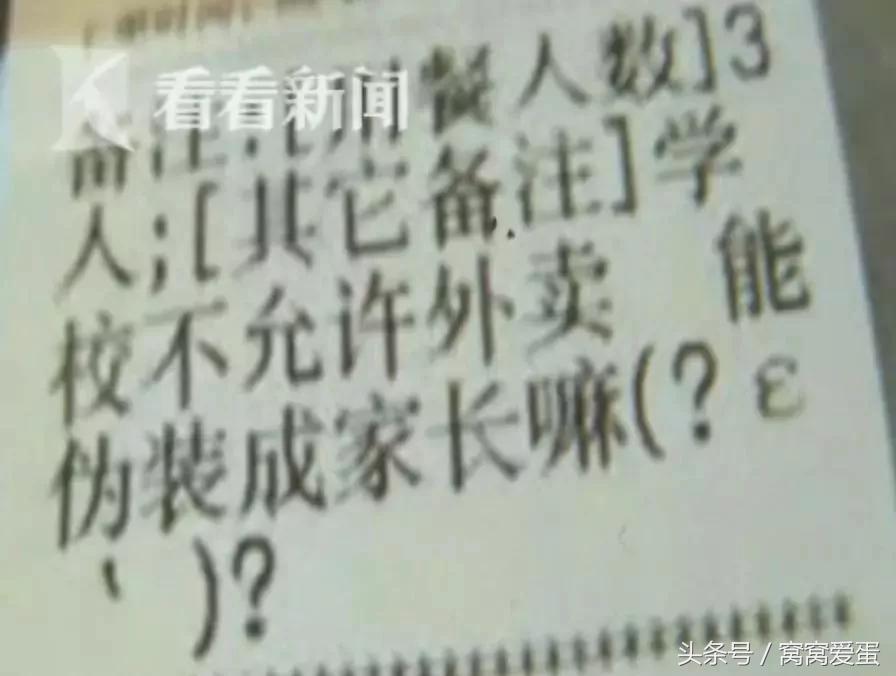 看看新闻
备注:[用餐人数]3
人;[其它备注]学
校不允许外卖 能
伪装成家长嘛(?ε
' )?
头条号 / 窝窝爱蛋